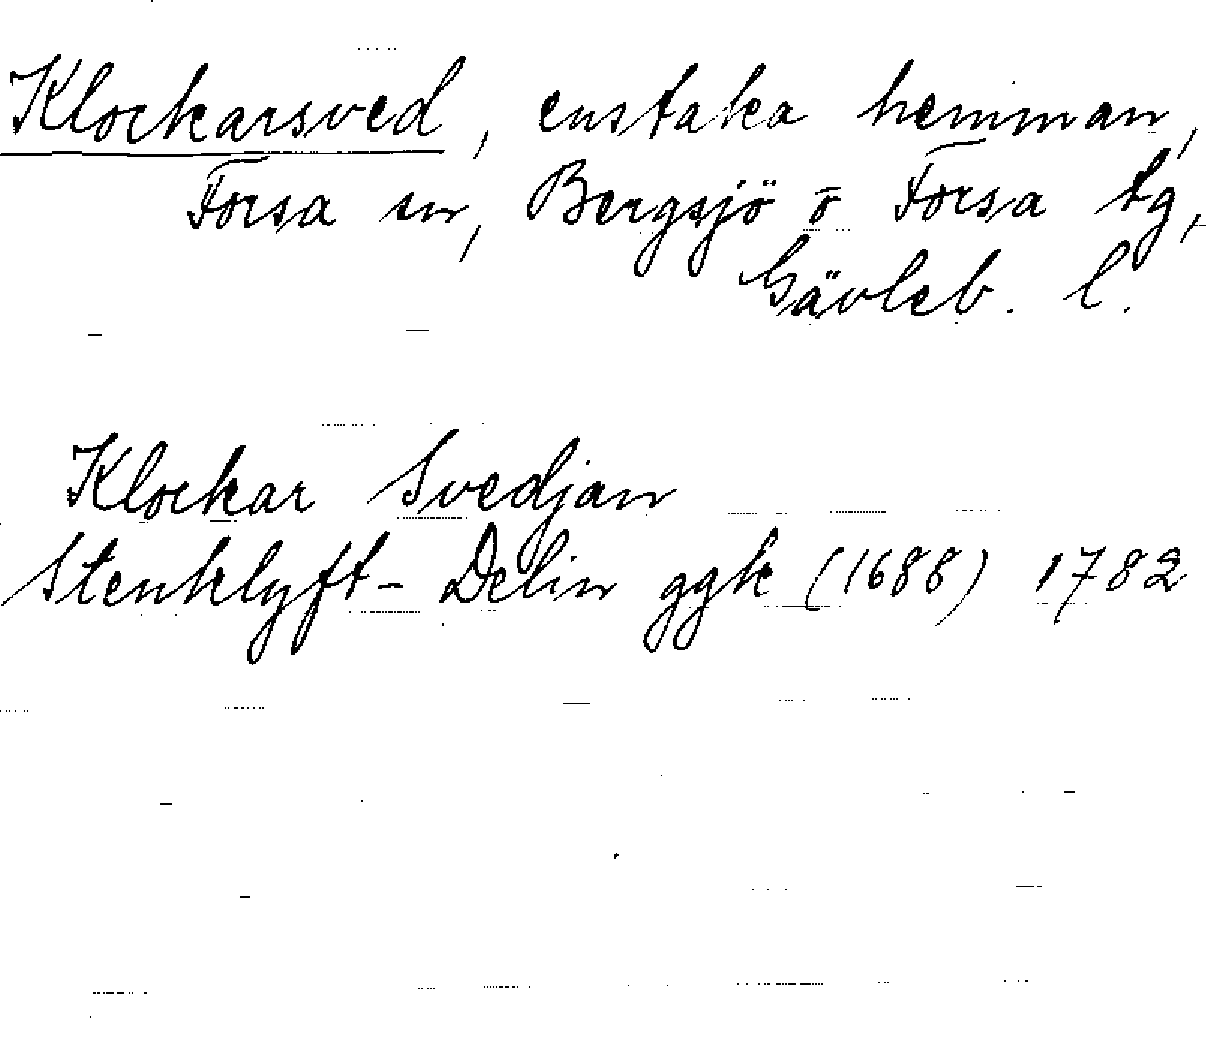 Klockarsved, enstaka hemman,
Forsa sn, Bergsjö o Forsa tg,
Gävleb. l.
Klockar Svedjan
Stenklyft-Delin ggk (1688) 1782